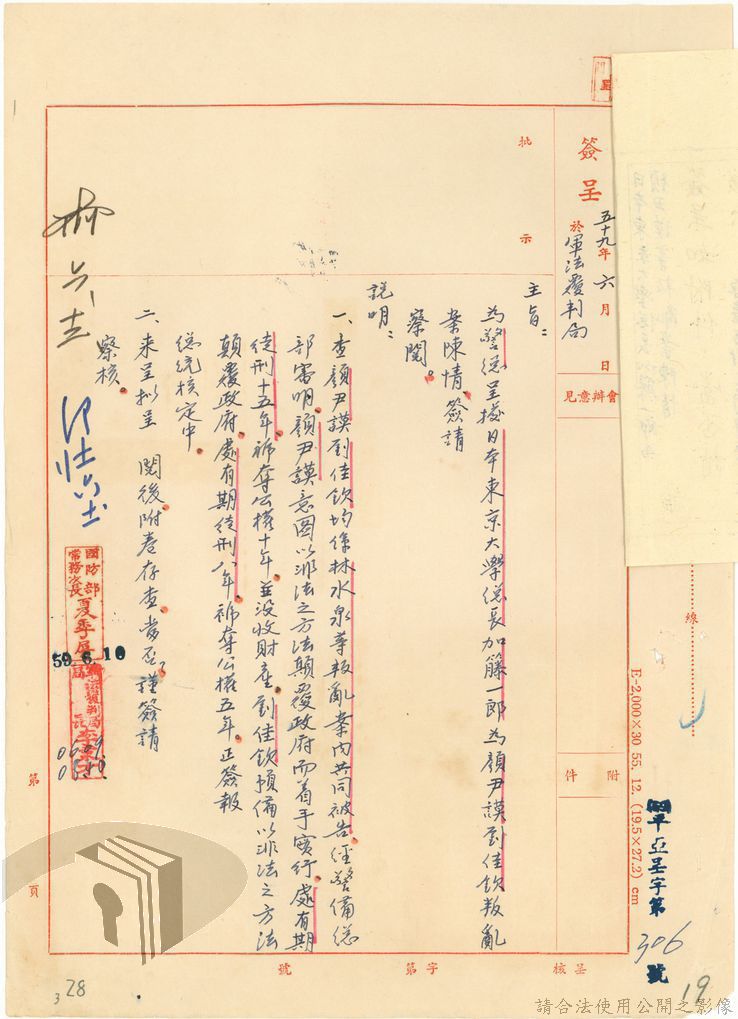 簽呈
五十九年六月 日
於軍法覆判局
批示
會辦意見
附件
主旨：
為警總呈據日本東京大學總長加籐一郎為顏尹謨劉佳欽叛亂
案陳情，簽請
察閱。
說明：
一、查顏尹謨劉佳欽均係林水泉等叛亂案內共同被告，經警備總
部審明，顏尹謨意圖以非法之方法顛覆政府而着手實行，處有期
徒刑十五年，褫奪公權十年，並沒收財產，劉佳欽預備以非法之方法
顛覆政府，處有期徒刑八年，褫奪公權五年。正簽報
總統核定中。
二、來呈擬呈 閱後附卷存查，當否？謹簽請
察核。
國防部
常務次長
59.6.10
線
E-2,000×30 55. 12. (19.5×27.2) cm
亞呈字第
306
號
呈核 字第 號
第 頁
328
19
請合法使用公開之影像